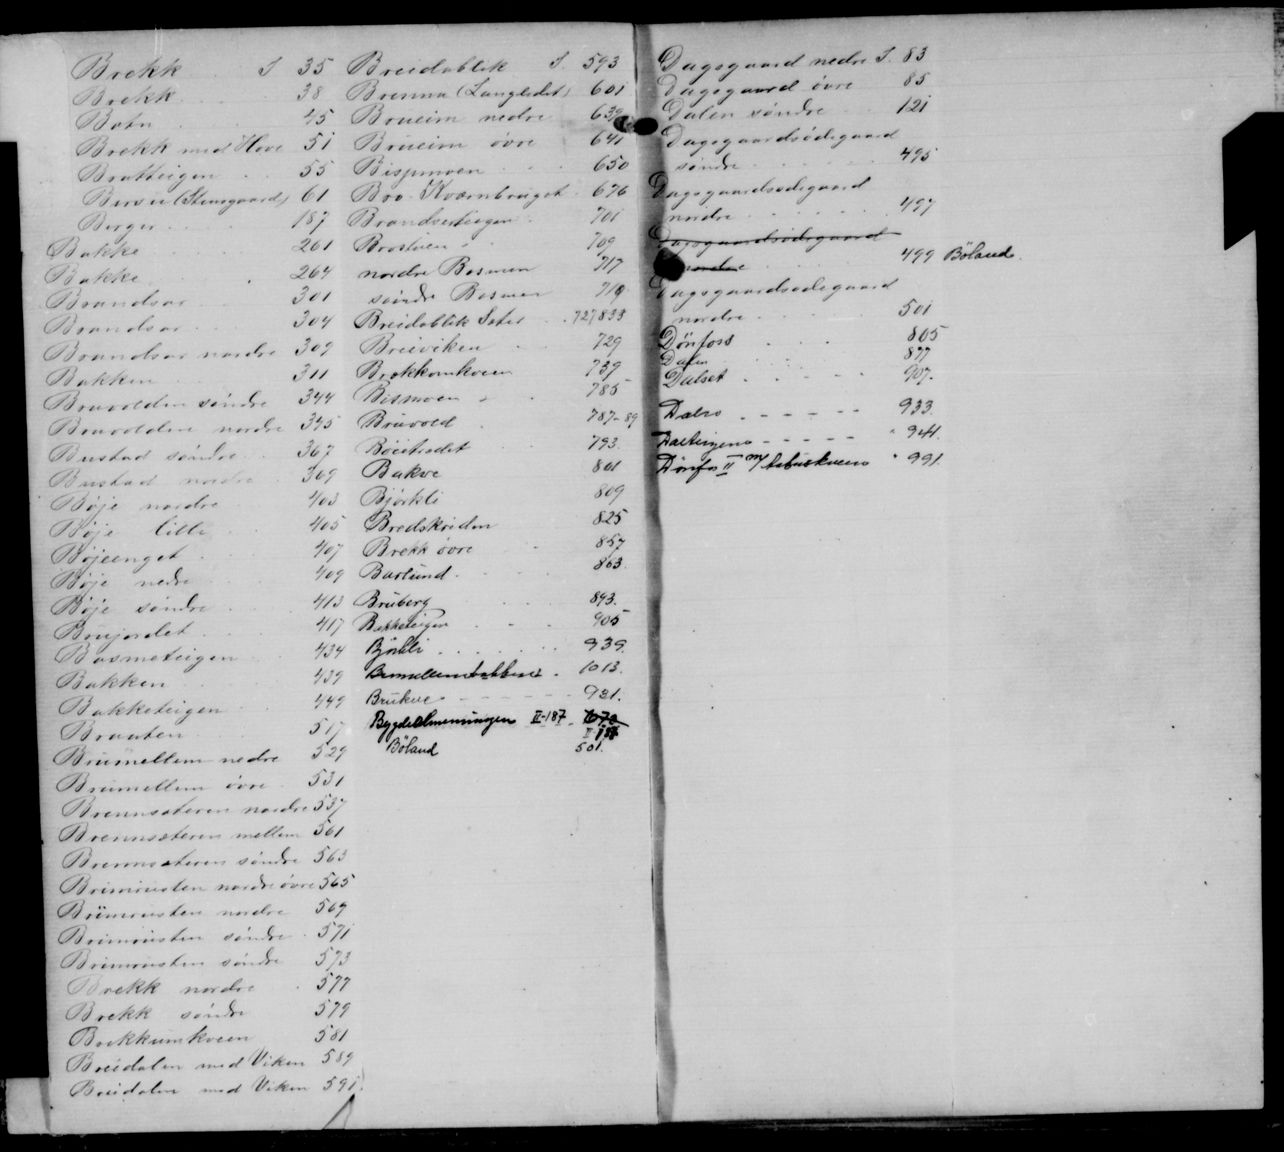 Brekk I 35
Brekk 38
Botn 45
Brekk med Hove 51
Bratteigen 55
Bersvi (Steinsgaard) 61
Berger 187
Bakke 261
Bakke 264
Brandsar 301
Brandsar 304
Brandsar nordre 309
Bakken 311
Brüvolden söndre 344
Brüvolden nordre 345
Bustad söndre 367
Bustad nordre 369
Böje nordre 403
Böje lille 405
Böjeenget 407
Böje nedre 409
Böje söndre 413
Brujordet 417
Bosmoteigen 434
Bakken 439
Bakketeigen 449
Braaten 517
Brümellem nedre 529
Brümellem övre 531
Brennsæteren nordre 537
Brennsæteren mellem 561
Brennsæteren söndre 563
Brimiristen nordre övre 565
Brimiristen nordre 569
Brimiristen söndre 571
Brimiristen söndre 573
Brekk nordre 577
Brekk söndre 579
Brekkümkveen 581
Breidalen med Viken 589
Breidalen med Viken 591
Breidablik I. 593
Brenna (Langledet) 601
Brüeim nedre 639
Brüeim övre 641
Bispmoen 650
Bro Kværnbruget 676
Brandserteigen 701
Brostuen 709
nordre Bosmoen 717
söndre Bosmoen 719
Breidablik Sæter 727, 833
Breiviken 729
Brekkomkveen 739
Bismoen 785
Brüvold 787-89
Böietrædet 793.
Bakve 801
Björkli 809
Bredskriden 825
Brekk övre 857
Barlund 863.
Brüberg 893.
Bekketeigen 905
Björkli 939.
1013.
Brukve 931.
Bygdealmenningen II-187 1073
II 187
Böland 501.
Dagsgaard nedre I. 83
Dagsgaard övre 85
Dalen söndre 121
Dagsgaardsödegaard
söndre 495
Dagsgaardsödegaard
nordre 497
Dagsgaardsödegaard
nordre 499 Böland.
Dagsgaardsödegaard
nordre 501
Dönfoss 805
Dalen 877
Dalset 907.
Dalro 933.
Dalteigens " 941.
Dönfos II m/ " 991.